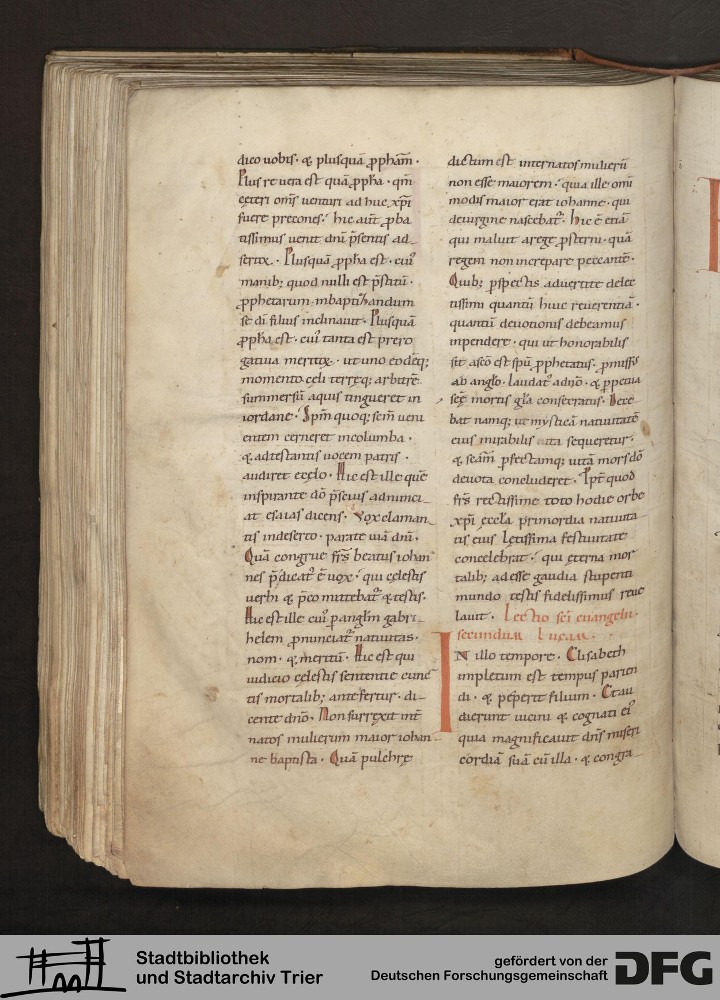 dico uobis· & plusquā ꝓphām·
Plus re uera est quā ꝓpha· qm̄
ceteri om̄s uenturi ad huc xp̄i
fuere precones· hic aūt ꝓba
tissimus uenit dn̄i p̄sentis ad
sertor· Plusquā ꝓpha est· cui᷒
manib; quod nulli est p̄stitū·
ꝓphetarum· inbaptizandum
se di filius inclinauit· Plusquā
ꝓpha est· cui᷒ tanta est prero
gatiua meritoꝝ· ut uno eodēq;
momento celi terręq; arbitrē
summersū aquis tingueret in
iordane· Sp̄m quoq; sc̄m ueni
entem cerneret incolumba·
& adtestantis uocem patris·
audiret ecęlo· Hic est ille quē
inspirante dō p̄scius adnunci
at esaias dicens· Vox claman
tis indeserto· parate uiā dn̄i·
Quā congrue fr̄s beatus iohan
nes p̄dicat᷒ ē uox· qui cęlestis
uerbi & p̄co mittebat᷒ & testis·
Hic est ille cui᷒ ꝑ anglm̄ gabri
helem ꝓnunciat᷒ natiuitas·
nom· & meritū· Hic est qui
iudicio cęlestis sententie cunc
tis mortalib; antefertur· di
cente dn̄o· Non surrexit int̄
natos mulierum maior iohan
ne baptista· Quā pulchrę
dictum est internatos mulierū
non esse maiorem· quia ille om̄i
modis maior erat iohanne· qui
deuirgine nascebat᷒· hic ē etiā
qui maluit arege ꝓsterni· quā
regem non increpare peccantē·
Quib; ꝑspectis aduertite dilec
tissimi quantū huic reuerentiā·
quantū deuotionis debeamus
inpendere· qui ut honorabilis
sit asc̄o est spū ꝓphetatus· ꝓmissus
ab anglo· laudat᷒ adn̄o· & ꝑpetua
sc̄ę mortis gl̄a consecratus· Dece
bat namq; ut mýsticā natiuitatē
eius mirabilis uita sequeretur·
& sc̄am ꝑfectamq; uitā mors dō
deuota concluderet· Ipt̄ quod
fr̄s rectissime toto hodie orbe
xp̄i eccl̄a primordia natiuita
tis eius lętissima festiuitate
concelebrat· qui ęterna mor
talib; adesse gaudia stupenti
mundo testis fidelissimus reue
lauit· Lectio sc̄i euangelii·
secundum Lucam·
IN illo tempore· Elisabeth
impletum est tempus parien
di· & peperit filium· Et au
dierunt uicini & cognati ei᷒
quia magnificauit dn̄s miseri
cordiā suā cū illa· & congra
Stadtbibliothek
und Stadtarchiv Trier
gefördert von der
Deutschen Forschungsgemeinschaft
DFG